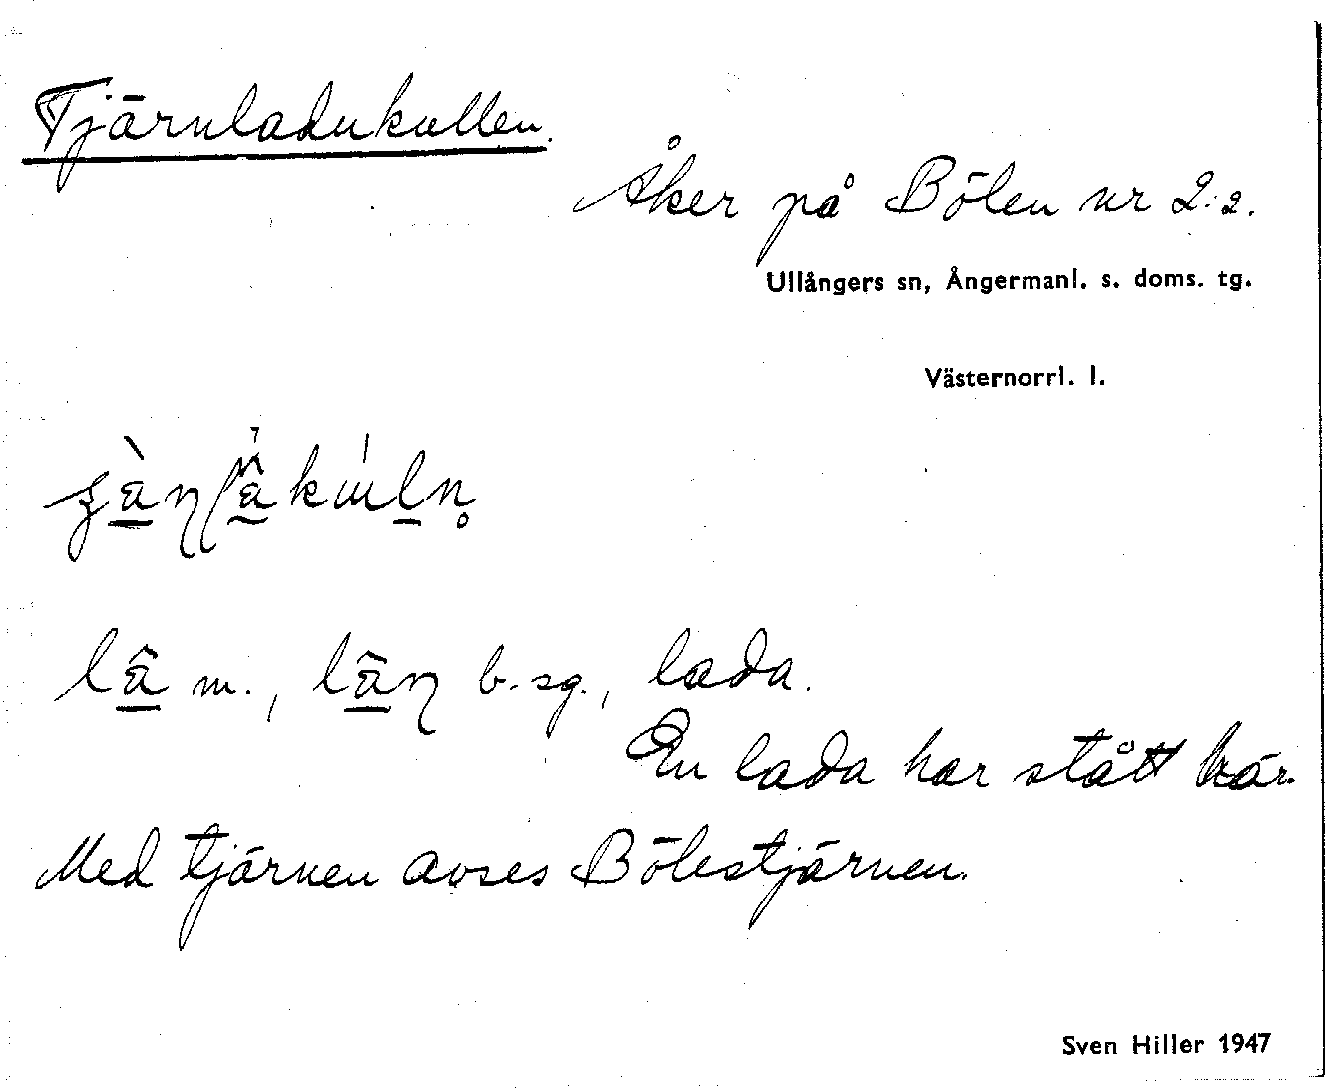 Tjärnladukullen.
Åker på Bölen nr 2:2.
Ullångers sn, Ångermanl. s. doms. tg.
Västernorrl. l.
m., b. sg., lada.
En lada har stått här.
Med tjärnen avses Bölestjärnen.
Sven Hiller 1947